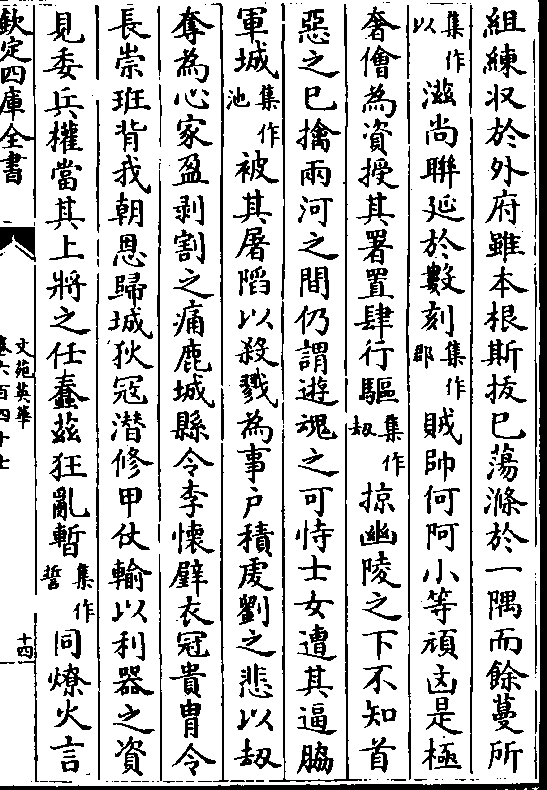 組練収於外府雖本根斯拔已蕩滌於一隅而餘蔓所
集作以滋尚聯延於數刻集作郡賊帥何阿小等頑凶是極
奢儈為資授其署置肆行驅集作劫掠幽陵之下不知首
惡之已擒兩河之間仍謂遊魂之可恃士女遭其逼脇
軍城集作池被其屠䧟以殺戮為事户積虔劉之悲以刼
奪為心家盈剥割之痛鹿城縣令李懷璧衣冠貴胄令
長崇班背我朝恩歸城狄冦潛修甲仗輸以利器之資
見委兵權當其上將之任蠢兹狂亂暫集作誓同燎火言
欽定四庫全書
文苑英華
卷六百四十七
十四